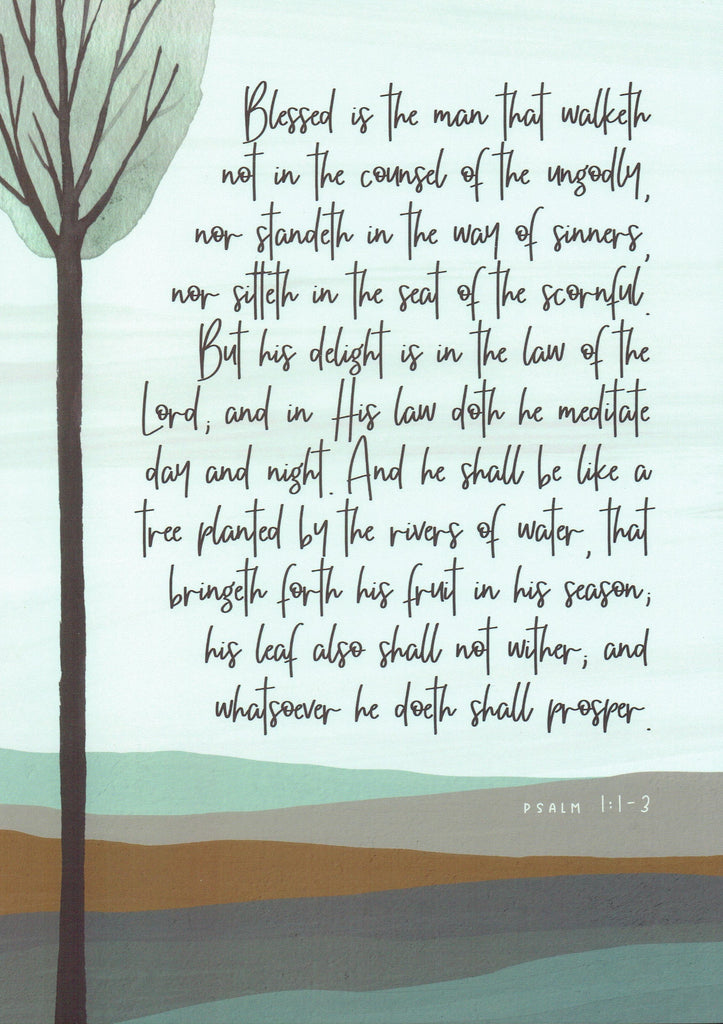 Blessed is the man that walketh
not in the counsel of the ungodly,
nor standeth in the way of sinners,
nor sitteth in the seat of the scornful.
But his delight is in the law of the
Lord; and in His law doth he meditate
day and night. And he shall be like a
tree planted by the rivers of water, that
bringeth forth his fruit in his season;
his leaf also shall not wither; and
whatsoever he doeth shall prosper.
PSALM 1:1-3